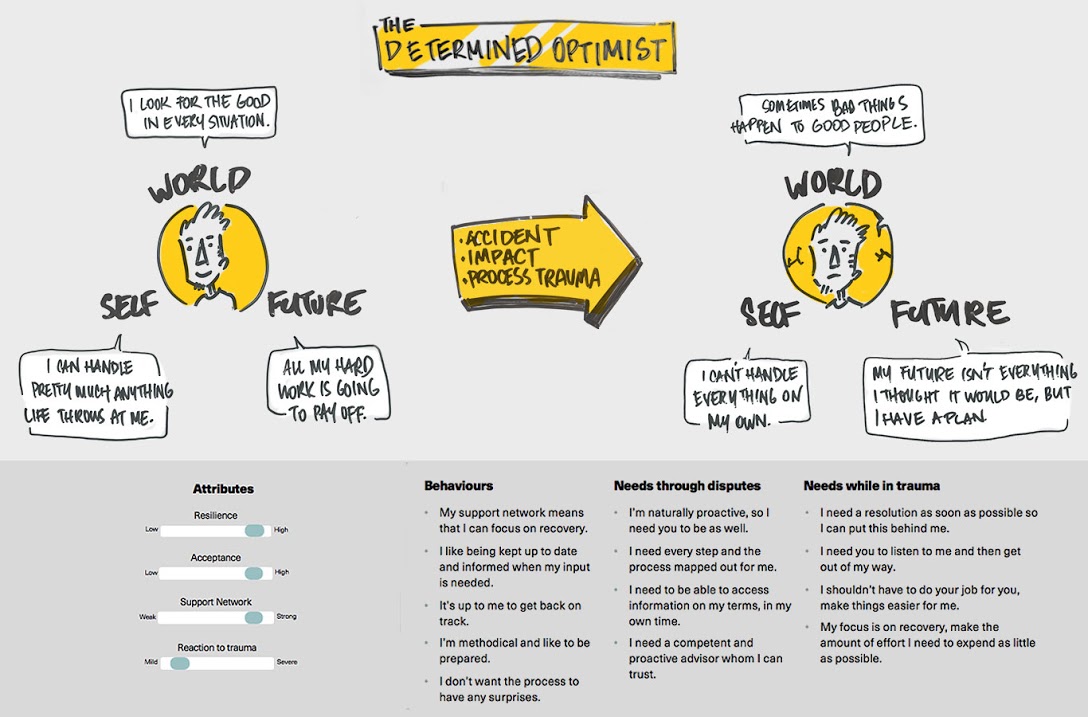 THE
DETERMINED OPTIMIST
I LOOK FOR THE GOOD
IN EVERY SITUATION.
WORLD
SELF
FUTURE
I CAN HANDLE
PRETTY MUCH ANYTHING
LIFE THROWS AT ME.
ALL MY HARD
WORK IS GOING
TO PAY OFF.
• ACCIDENT
• IMPACT
• PROCESS TRAUMA
SOMETIMES BAD THINGS
HAPPEN TO GOOD PEOPLE.
WORLD
SELF
FUTURE
I CAN'T HANDLE
EVERYTHING ON
MY OWN.
MY FUTURE ISN'T EVERYTHING
I THOUGHT IT WOULD BE, BUT
I HAVE A PLAN.
Attributes
Resilience
Low High
Acceptance
Low High
Support Network
Weak Strong
Reaction to trauma
Mild Severe
Behaviours
• My support network means
that I can focus on recovery.
• I like being kept up to date
and informed when my input
is needed.
• It's up to me to get back on
track.
• I'm methodical and like to be
prepared.
• I don't want the process to
have any surprises.
Needs through disputes
• I'm naturally proactive, so I
need you to be as well.
• I need every step and the
process mapped out for me.
• I need to be able to access
information on my terms, in my
own time.
• I need a competent and
proactive advisor whom I can
trust.
Needs while in trauma
• I need a resolution as soon as possible so
I can put this behind me.
• I need you to listen to me and then get
out of my way.
• I shouldn't have to do your job for you,
make things easier for me.
• My focus is on recovery, make the
amount of effort I need to expend as little
as possible.